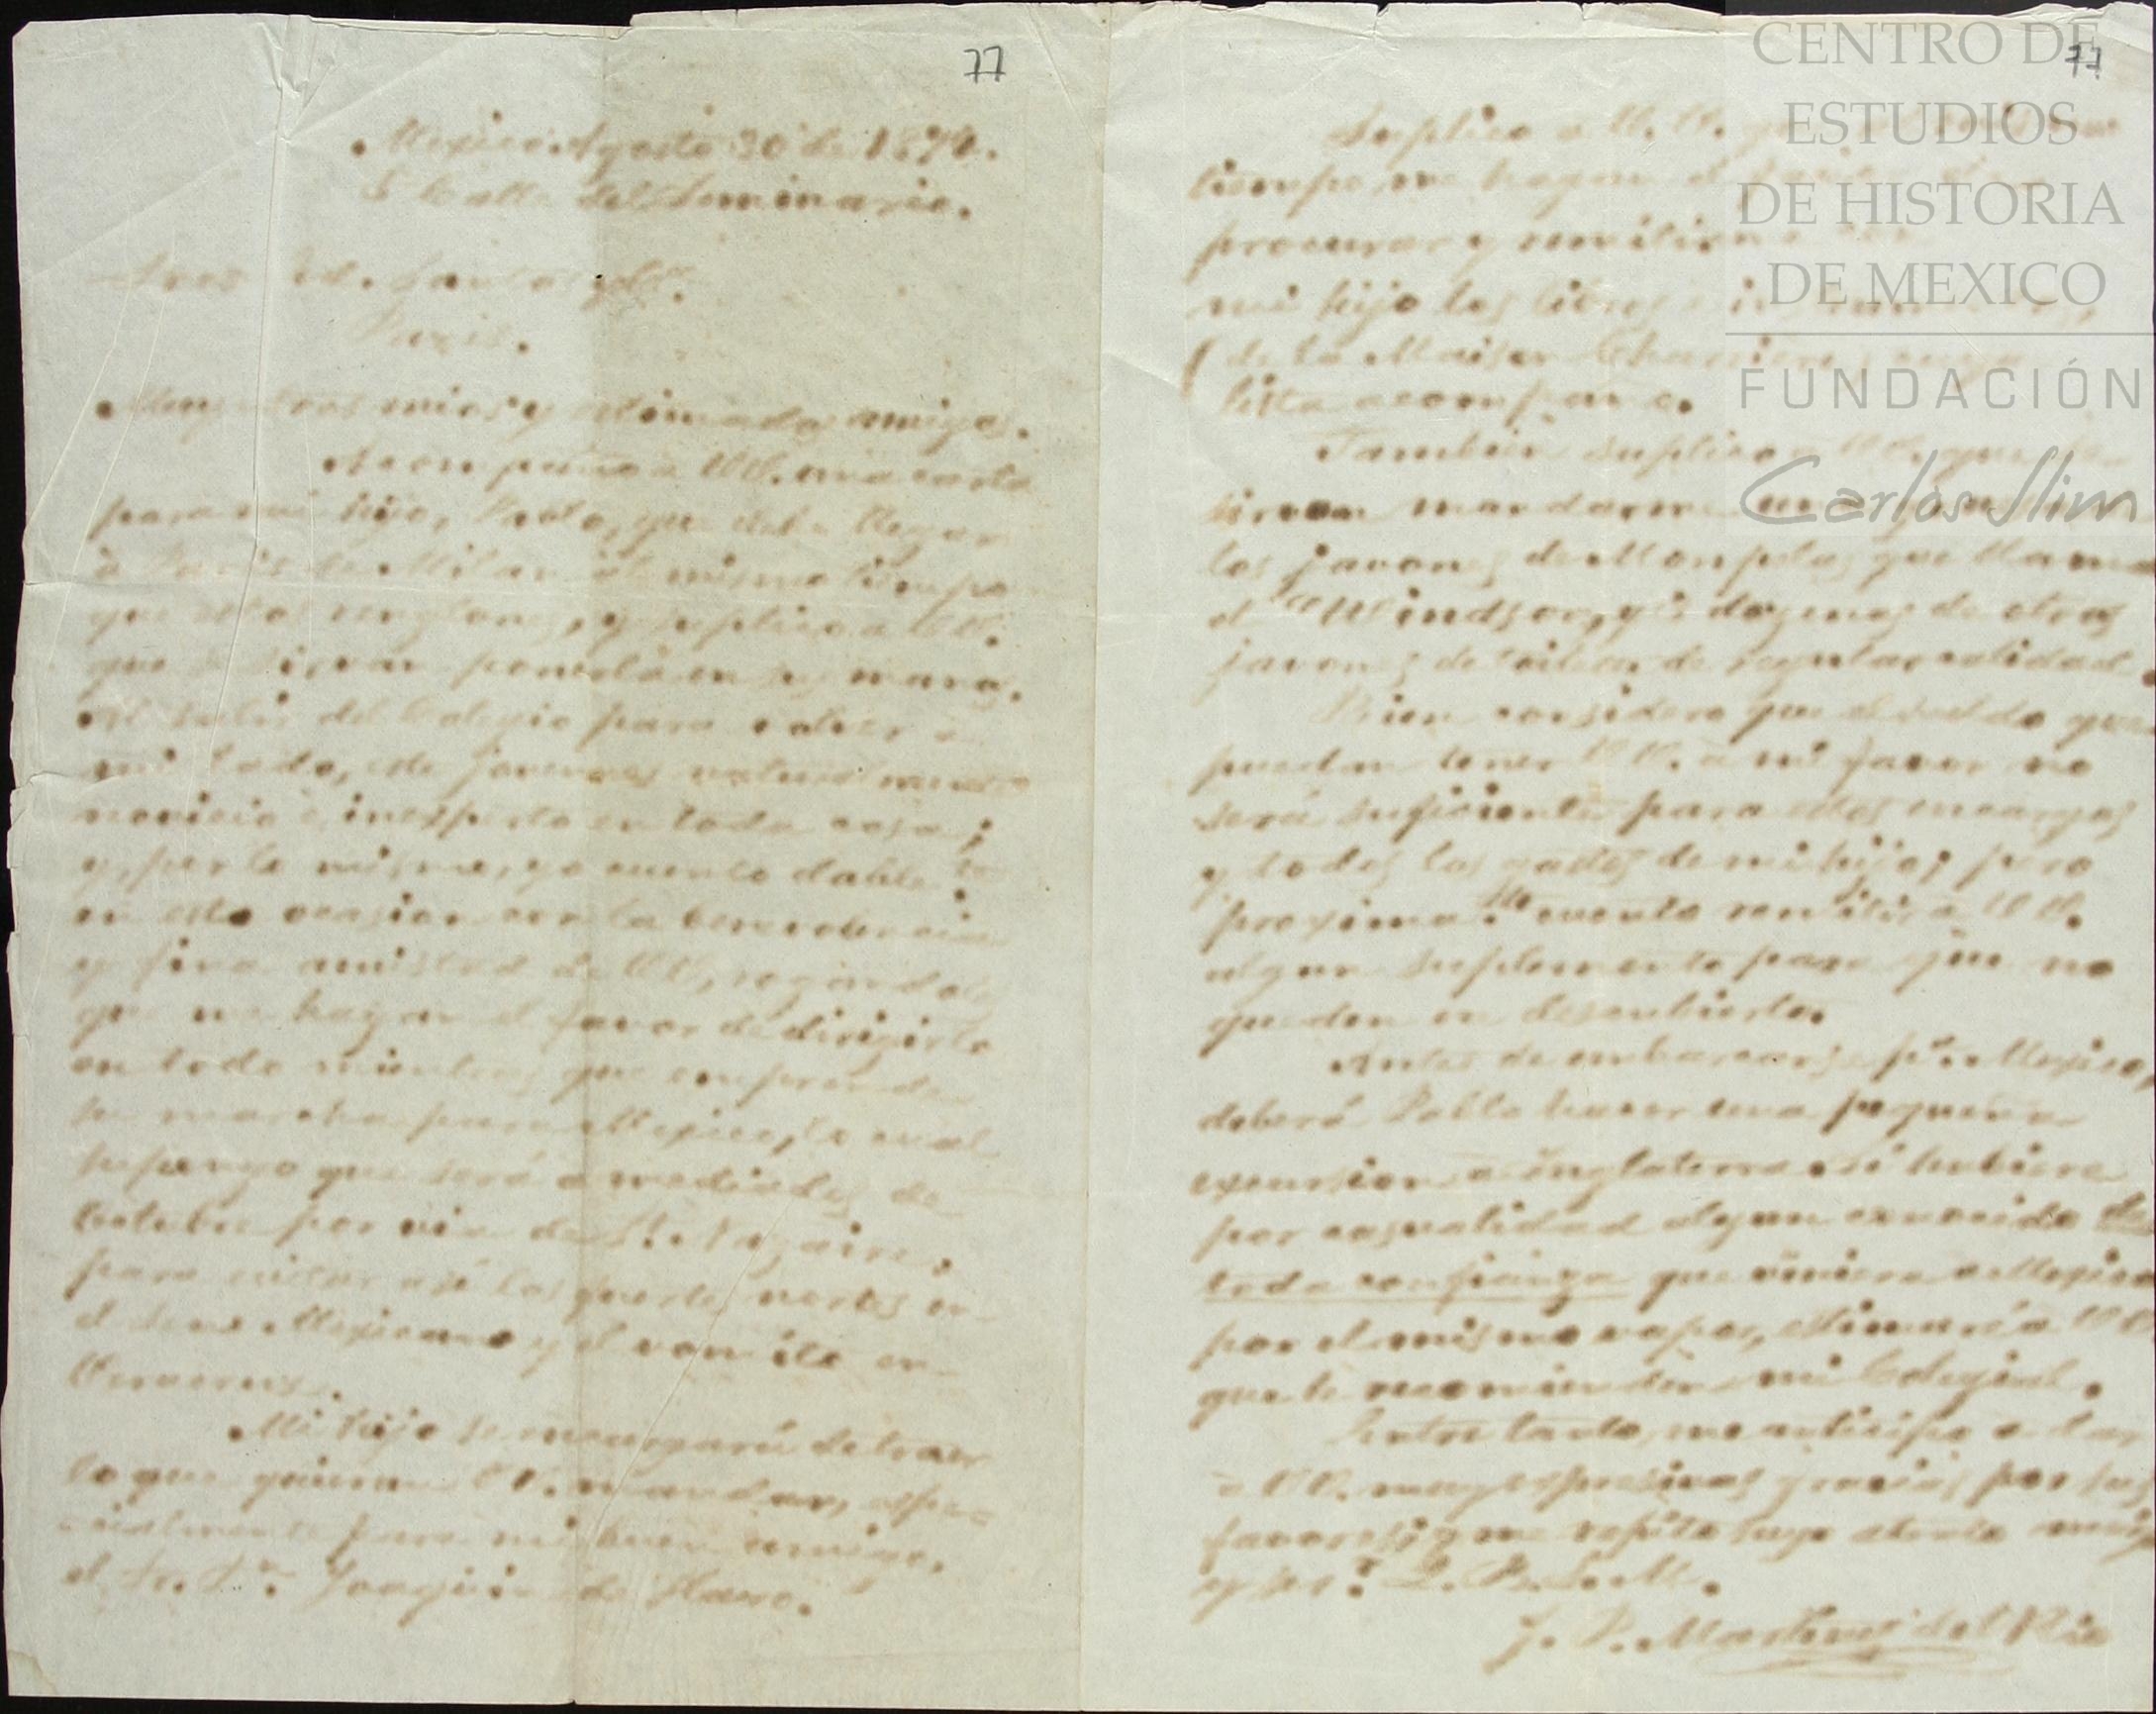 77
Mexico Agosto 30 de 187
Calle del Seminario.
Sres
Paris.
Muy Sres mios y estimados amigos.
Acompaño a UU. una carta
para mi hijo, Pablo, que debe llegar
á Paris de Milan al mismo tiempo
que estos renglones, y suplico a UU.
que se sirvan ponerla en sus manos.
Al salir del Colegio para volver a
mi lado, este joven es naturalmente
novicio é inexperto en toda cosa;
y, por lo mismo, yo cuento
en esta ocasion con la benevolencia
y fina amistad de UU, rogandoles
que me hagan el favor de dirigirlo
en todo mientras que emprende
su marcha para Mexico, lo cual
supongo que será a mediados de
Octubre por via de St. Nazaire,
para evitar asi los fuertes nortes en
el Seno Mexicano y el vomito en
Veracruz.
Mi hijo se encargará de traer
lo que quieran UU. mandar, espe-
cialmente para mi buen amigo,
el Sr. Dn. Joaquin de Haro.
77
Suplico a UU.
tiempo me hagan el
procurar y
mi hijo los libros
(de la Maison Charriere) cuya
lista acompaño.
Tambien suplico a UU. que se
sirvan mandarme
los javones de Monpelas que llaman
el "Windsor, y dozenas de otros
javones de toilette de regular calidad.
Bien considero que el saldo que
puedan tener UU. a mi favor no
será suficiente para estos encargos
y todos los gastos de mi hijo; pero
proximamte. cuento remitir a UU.
algun suplemento para que no
queden en descubierto.
Antes de embarcarse pa. Mexico,
deberá Pablo hacer una pequeña
excursion a Inglaterra. Si hubiere
por casualidad algun conocido de
toda confianza que viniera a Mexico
por el mismo vapor, estimaré a UU
que le recomienden mi Colegial.
Entre tanto, me anticipo a dar
a UU. muy expresivas gracias por sus
favores; y me repito suyo atento amigo
y ser.r Q. B. S. M.
J. P. Martinez del Rio
CENTRO DE
ESTUDIOS
DE HISTORIA
DE MEXICO
FUNDACIÓN
Carlos Slim